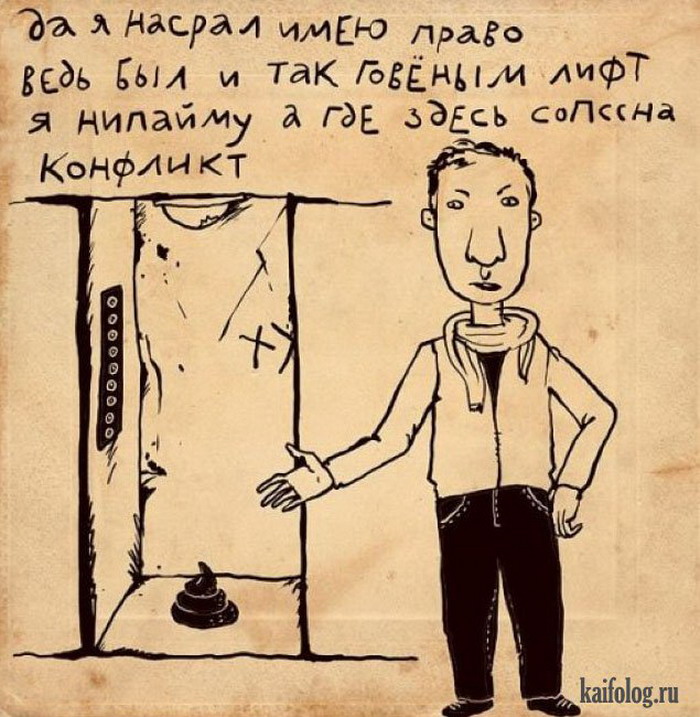 да я насрал имею право
ведь был и так говёным лифт
я нипайму а где здесь сопссна
конфликт
ху
kaifolog.ru